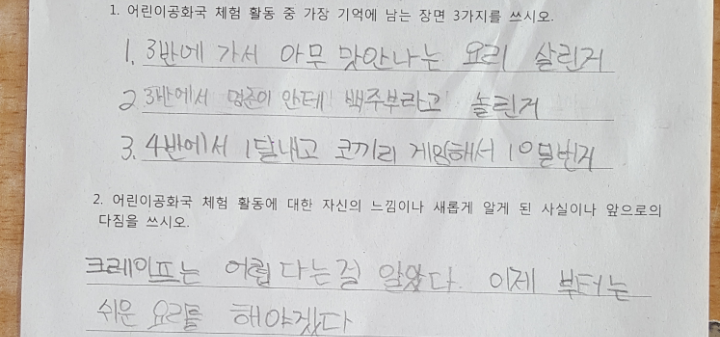 1. 어린이공화국 체험 활동 중 가장 기억에 남는 장면 3가지를 쓰시오.
1. 3반에 가서 아무 맛안나는 요리 살린거
2 3반에서 명준이 안테 백주부라고 놀린거
3. 4반에서 1달내고 코끼리 게임해서 10달번거
2. 어린이공화국 체험 활동에 대한 자신의 느낌이나 새롭게 알게 된 사실이나 앞으로의
다짐을 쓰시오.
크레이프는 어렵다는걸 알았다. 이제 부터는
쉬운 요리를 해야겠다